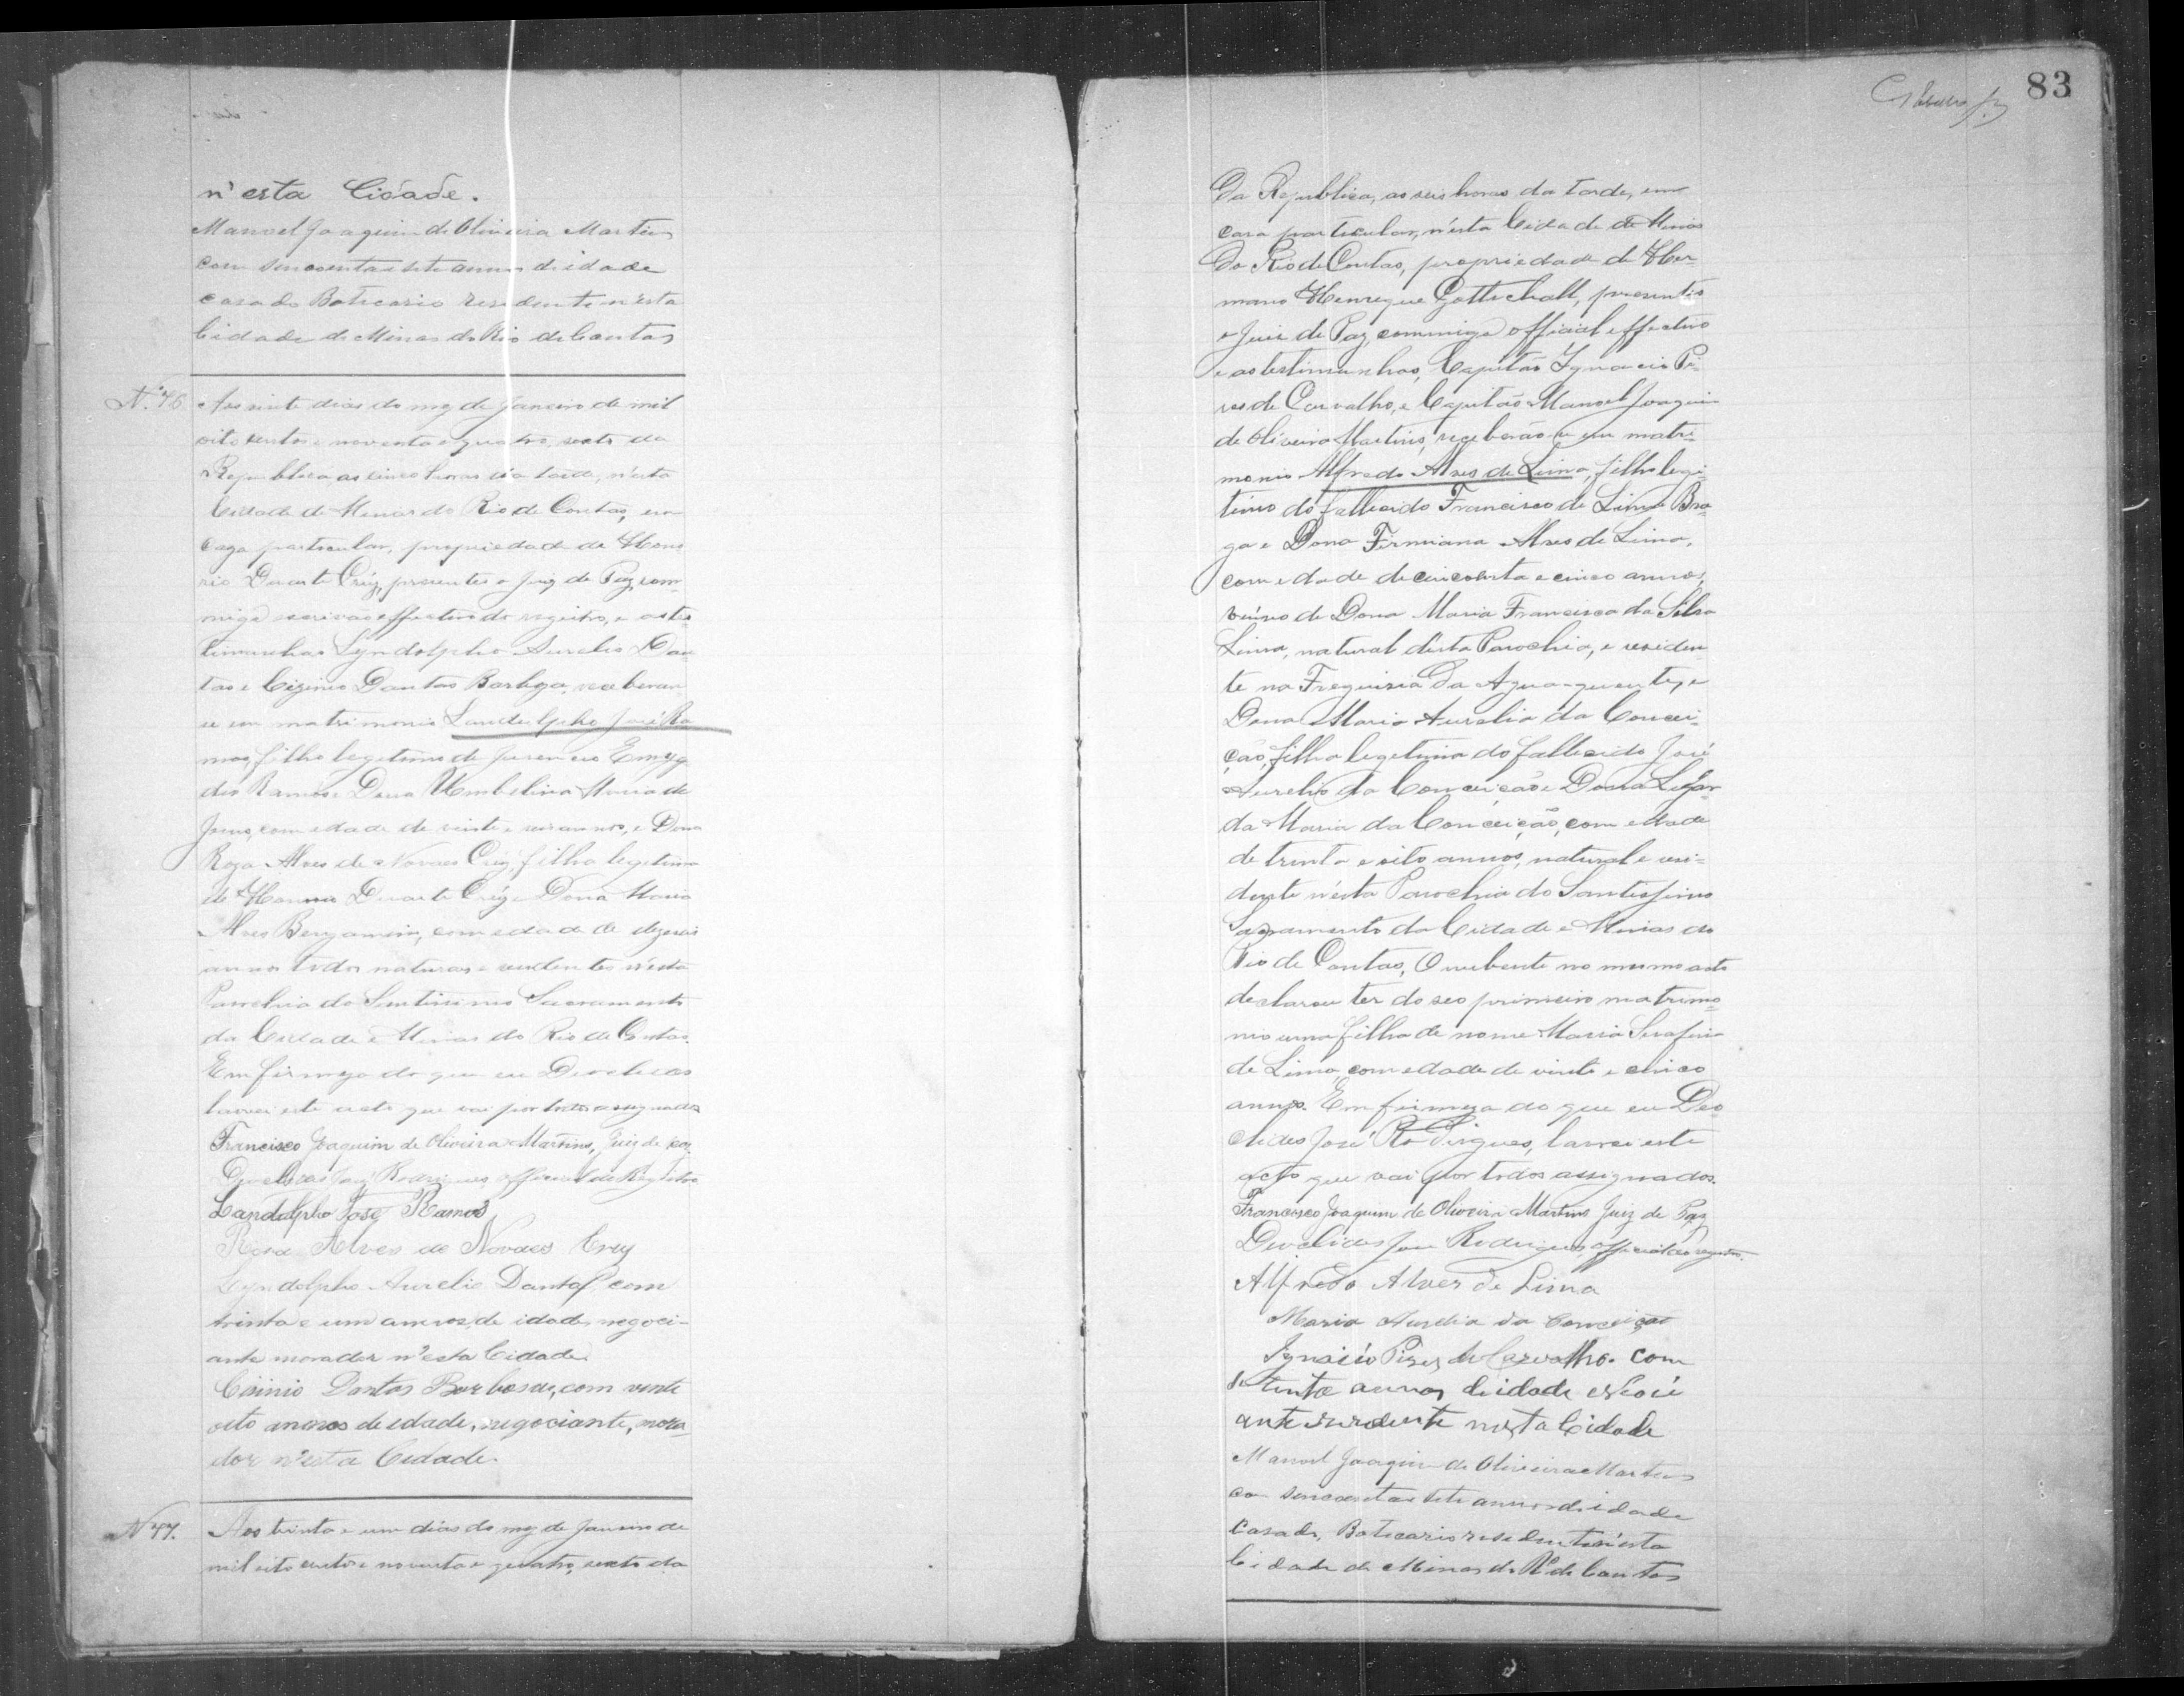 n'esta Cidade.
Manoel Joaquim de Oliveira Martins
com sincoenta e sete annos de idade
casado Boticario residente n'esta
Cidade de Minas do Rio de Contas
N.º 76
Aos vinte dias do mez de Janeiro de mil
oito centos e noventa e quatro, sexto da
Republica, as cinco horas da tarde, n'esta
Cidade de Minas do Rio de Contas, em
caza particular, propriedade de Hono
rio Duarte Créy, presentes o Juiz de Paz, com-
migo escrivão effectivo do registro, e as tes-
timunhas Lyndolpho Aurelio Dan-
tas e Cizinio Dantas Barboza, receberan-
se em matrimonio Landulpho José Ra-
mos, filho legitimo de Juvencio Emyg-
dio Ramos e Dona Umbelina Maria de
Jesus, com edade de vinte e seis annos, e Dona
Roza Alves de Novaes Créy, filha legitima
de Honorio Duarte Créy e Dona Maria
Alves Benjamim, com edade de dezeseis
annos todos naturaes e residentes n'esta
Parochia do Santissimo Sacramento
da Cidade e Minas do Rio de Contas.
Em firmeza do que eu Deoclides
lavrei este acto que vai por todos assignados
Francisco Joaquim de Oliveira Martins, Juiz de paz.
Deoclides José Rodrigues, official do Registro
Landolpho José Ramos
Rosa Alves de Novaes Crey
Lyndolpho Aurelio Dantas, com
trinta e um annos, de idade, negoci-
ante morador n'esta Cidade.
Cisinio Dantas Barbosa, com vinte
oito annos de edade, negociante, mora-
dor n'esta Cidade.
N 77.
Aos trinta e um dias do mez de Janeiro de
mil oito centos e noventa e quatro, sexto da
83
Da Republica, as seis horas da tarde, em
casa particular, n'esta Cidade de Minas
do Rio de Contas, propriedade de Her-
mano Henrique Gottschall, presentes
o Juiz de Paz, commigo official effectivo
e as testimunhas, Capitão Ignacio Pi-
res de Carvalho, e Capitão Manoel Joaquim
de Oliveira Martins, receberão-se em matri-
monio Alfredo Alves de Lima, filho legi-
timo do fallecido Francisco de Lima Bra-
ga e Dona Firmiana Alves de Lima,
com edade de cincoenta e cinco annos,
viuvo de Dona Maria Francisca da Silva
Lima, natural desta Parochia, e residen-
te na Freguizia da Agua-quente, e
Dona Maria Aurelia da Concei-
ção, filha legitima do fallecido José
Aurelio da Conceição e Dona Legar-
da Maria da Conceição, com edade
de trinta e oito annos, natural e resi-
dente n'esta Parochia do Santissimo
Sacramento da Cidade e Minas do
Rio de Contas, O nubente no mesmo acto
declarou ter do seo primeiro matrimo-
nio uma filha de nome Maria Serafina
de Lima, com edade de vinte e cinco
annos. Em firmeza do que eu Deo
clides José Rodrigues, lavrei este
acto que vai por todos assignados.
Francisco Joaquim de Oliveira Martins Juiz de Paz
Deoclides José Rodrigues, official do registro.
Alfredo Alves de Lima
Maria Aurelia da Conceição
Ignacio Pires de Carvalho. com
setenta annos de idade Negoci
ante rezidente nesta Cidade
Manoel Joaquim de Oliveira Martins
com sincoenta e sete annos de idade
Casado, Boticario residente n'esta
Cidade de Minas do R. de Contas